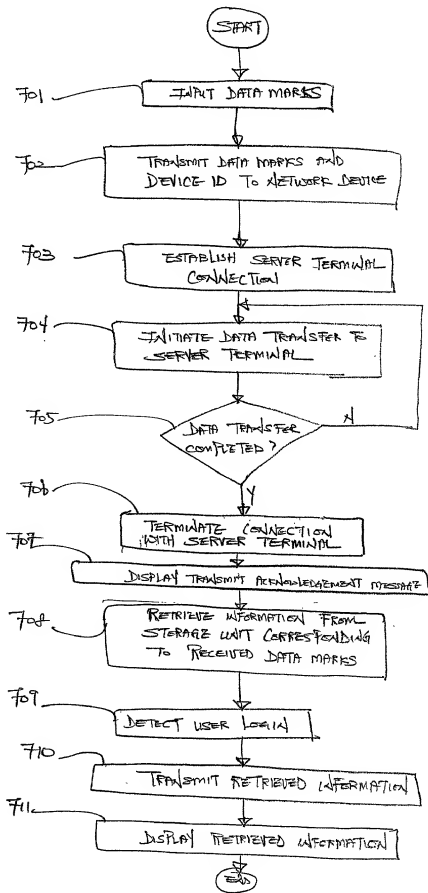 START
701
INPUT DATA MARKS
702
TRANSMIT DATA MARKS AND
DEVICE ID TO NETWORK DEVICE
703
ESTABLISH SERVER TERMINAL
CONNECTION
704
INITIATE DATA TRANSFER TO
SERVER TERMINAL
705
DATA TRANSFER
COMPLETED?
N
Y
706
TERMINATE CONNECTION
WITH SERVER TERMINAL
707
DISPLAY TRANSMIT ACKNOWLEDGEMENT MESSAGE
708
RETRIEVE INFORMATION FROM
STORAGE UNIT CORRESPONDING
TO RECEIVED DATA MARKS
709
DETECT USER LOGIN
710
TRANSMIT RETRIEVED INFORMATION
711
DISPLAY RETRIEVED INFORMATION
END